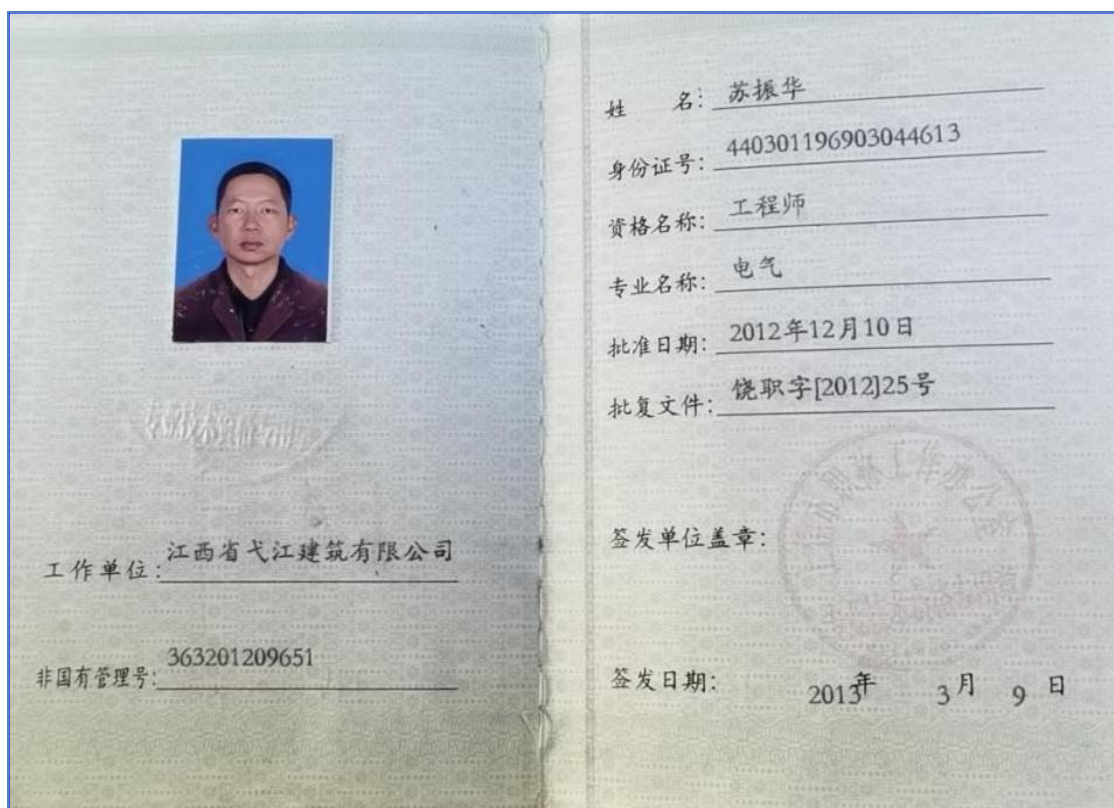 专业技术资格专用
工作单位:江西省弋江建筑有限公司
非国有管理号:363201209651
姓 名:苏振华
身份证号:440301196903044613
资格名称:工程师
专业名称:电气
批准日期:2012年12月10日
批复文件:饶职字[2012]25号
签发单位盖章:
上饶市职称工作办公室
签发日期: 2013年 3月 9日